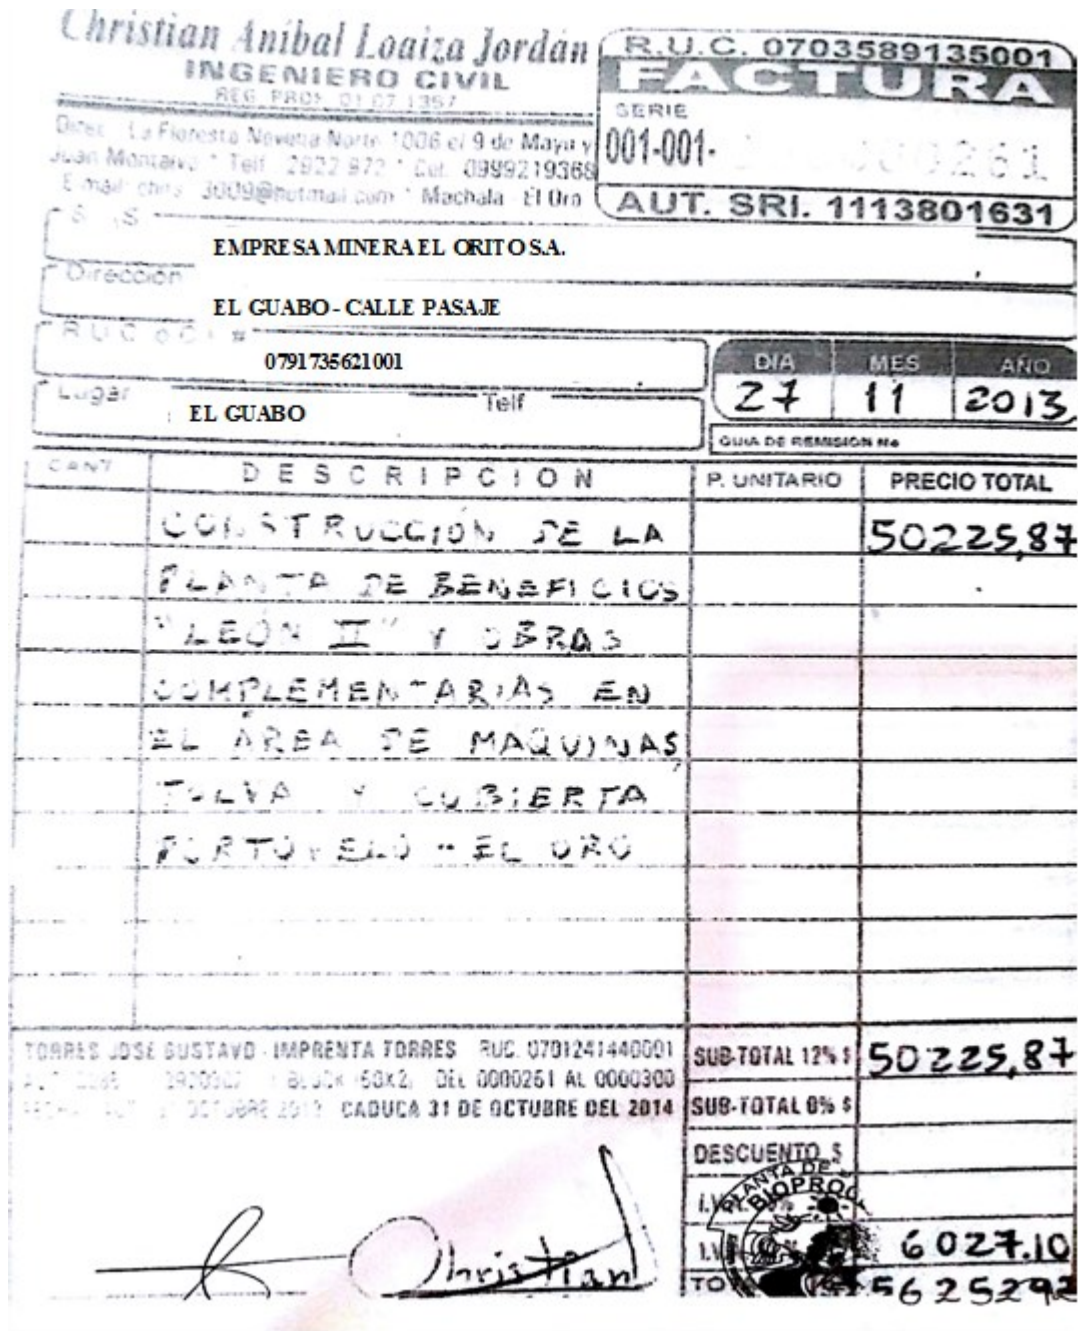 Christian Aníbal Loaiza Jordán
INGENIERO CIVIL
REG. PROF. 01 07 1367
Direc. La Floresta Novena Norte 1006 e/ 9 de Mayo y
Juan Montalvo * Telf. 2922 972 * Cel. 0999219368
E-mail: chris_3009@hotmail.com * Machala - El Oro
R.U.C. 0703589135001
FACTURA
SERIE
001-001- 261
AUT. SRI. 1113801631
S S
EMPRESA MINERA EL ORITO S.A.
Dirección
EL GUABO - CALLE PASAJE
R U C o C I #
0791735621001
Lugar EL GUABO Telf
DIA MES AÑO
27 11 2013
GUIA DE REMISION No
CANT DESCRIPCION P. UNITARIO PRECIO TOTAL
CONSTRUCCIÓN DE LA 50225,87
PLANTA DE BENEFICIOS
"LEÓN II" Y OBRAS
COMPLEMENTARIAS EN
EL ÁREA DE MAQUINAS,
TOLVA Y CUBIERTA
PORTOVELO - EL ORO
TORRES JOSE GUSTAVO - IMPRENTA TORRES RUC. 0701241440001
1 BLOCK (50X2) DEL 0000261 AL 0000300
OCTUBRE 2013 CADUCA 31 DE OCTUBRE DEL 2014
SUB-TOTAL 12% $ 50225,87
SUB-TOTAL 0% $
DESCUENTO $
I.V.A. 0%
PLANTA DE
BIOPROC
I.V. % 6027.10
TO 56252,92
Christian